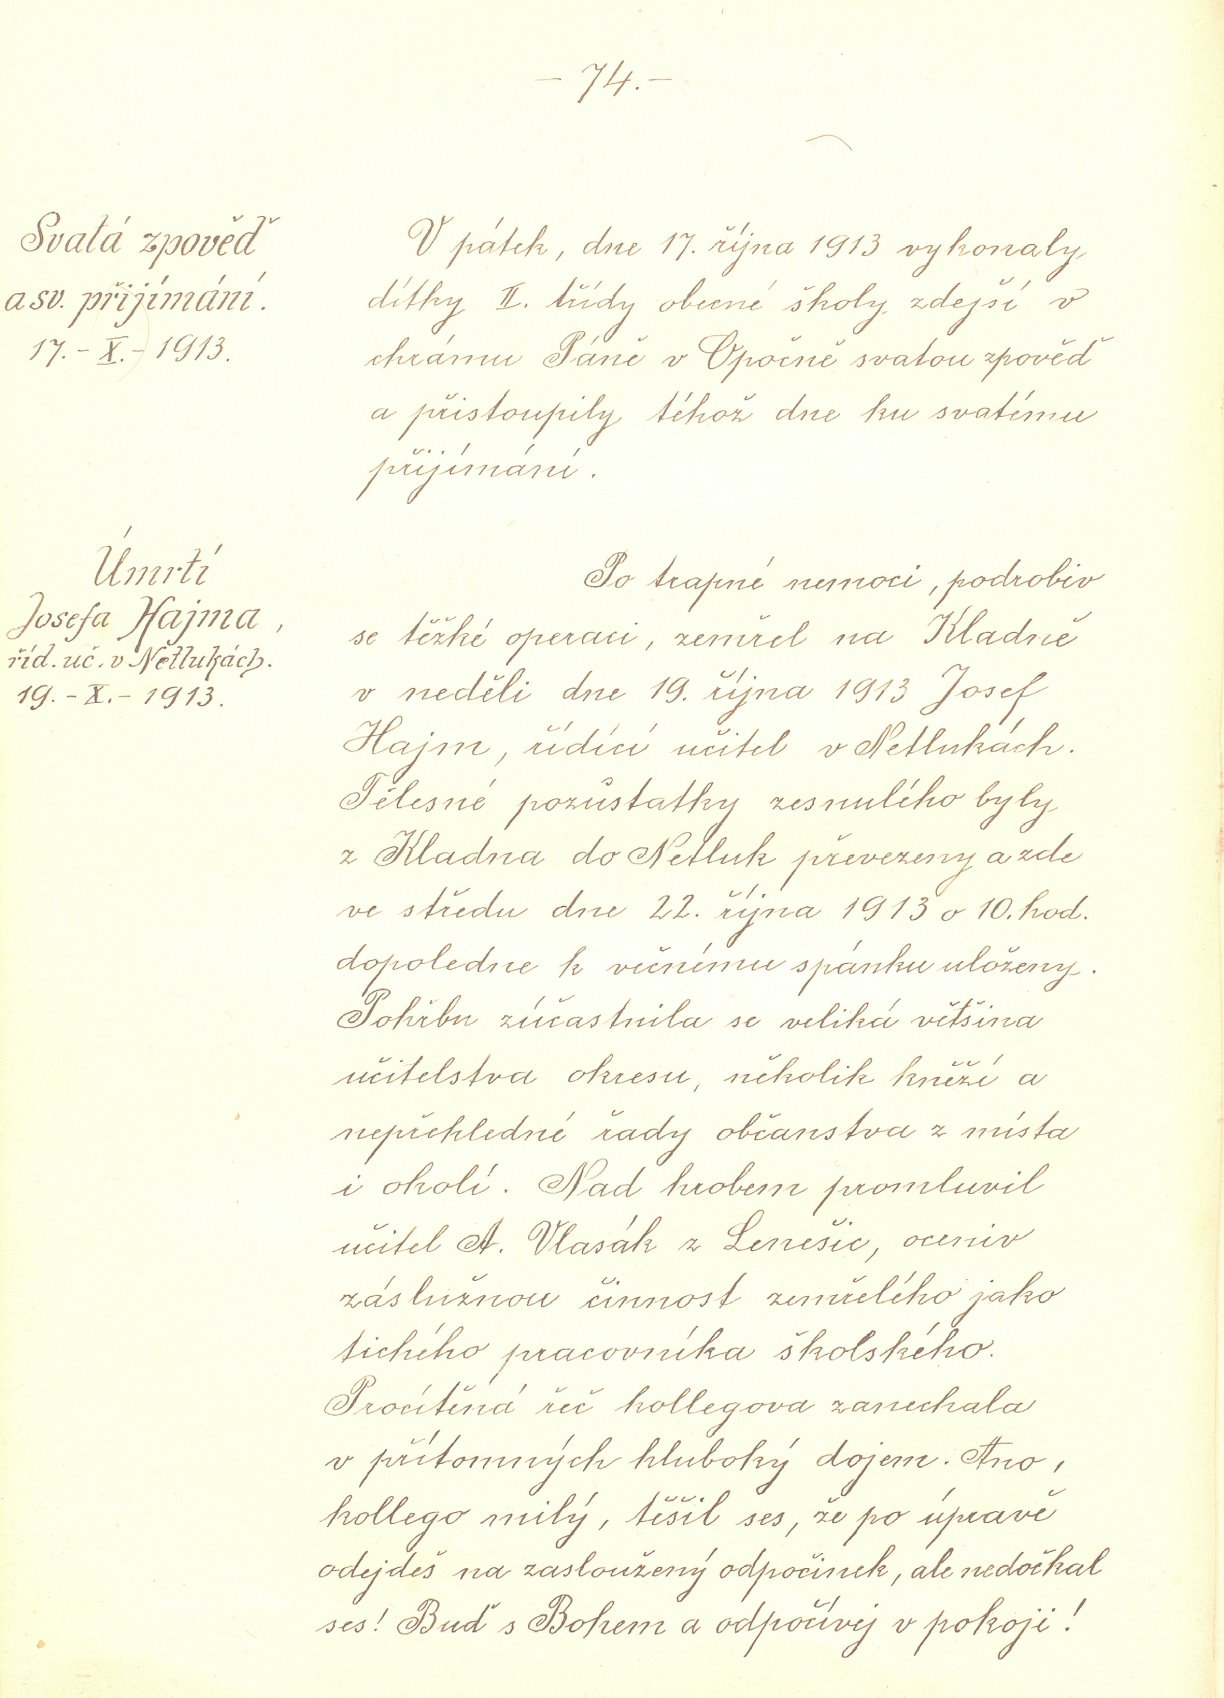 – 74. –
Svatá zpověď
a sv. přijímání.
17. – X. – 1913.
V pátek, dne 17. října 1913 vykonaly
dítky II. třídy obecné školy zdejší v
chrámu Páně v Opočně svatou zpověď
a přistoupily téhož dne ku svatému
přijímání.
Úmrtí
Josefa Hajma,
říd. uč. v Netlukách.
19. – X. – 1913.
Po trapné nemoci, podrobiv
se těžké operaci, zemřel na Kladně
v neděli dne 19. října 1913 Josef
Hajm, řídící učitel v Netlukách.
Tělesné pozůstatky zesnulého byly
z Kladna do Netluk převezeny a zde
ve středu dne 22. října 1913 o 10. hod.
dopoledne k věčnému spánku uloženy.
Pohřbu zúčastnila se veliká většina
učitelstva okresu, několik kněží a
nepřehledné řady občanstva z místa
i okolí. Nad hrobem promluvil
učitel A. Vlasák z Lenešic, oceniv
záslužnou činnost zemřelého jako
tichého pracovníka školského.
Procítěná řeč kollegova zanechala
v přítomných hluboký dojem. Ano,
kollego milý, těšil ses, že po úpravě
odejdeš na zasloužený odpočinek, ale nedočkal
ses! Buď s Bohem a odpočívej v pokoji!